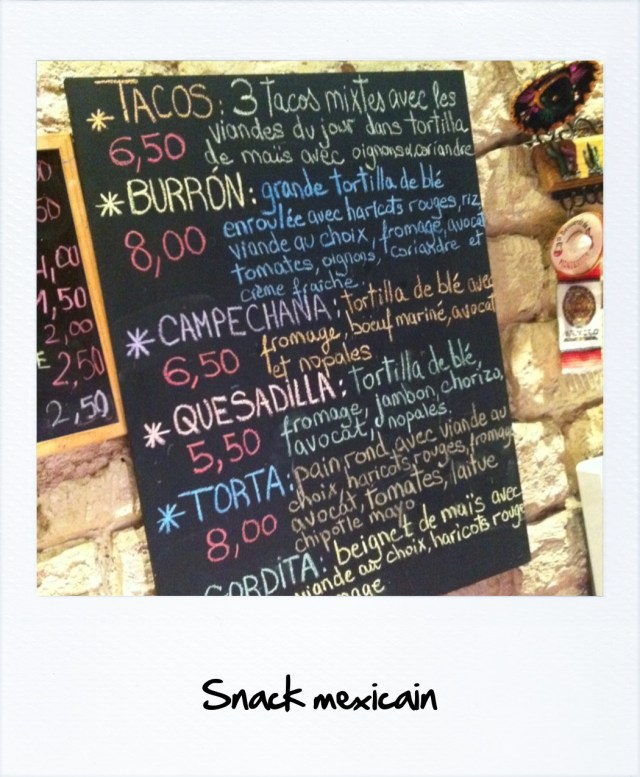 TACOS: 3 tacos mixtes avec les
6,50 viandes du jour dans tortilla
de maïs avec oignons & coriandre
* BURRÓN: grande tortilla de blé
8,00 enroulée avec haricots rouges, riz,
viande au choix, fromage, avocat
tomates, oignons, coriandre et
crème fraîche.
* CAMPECHANA: tortilla de blé avec
6,50 fromage, boeuf mariné, avocat
et nopales
* QUESADILLA: tortilla de blé,
5,50 fromage, jambon, chorizo,
avocat, nopales.
* TORTA: pain rond avec viande au
8,00 choix, haricots rouges, fromage
avocat, tomates, laitue
chipotle mayo
GORDITA: beignet de maïs avec
viande au choix, haricots rouge
mage
50
50
4,00
1,50
2,00
E 2,50
2,50
Snack mexicain